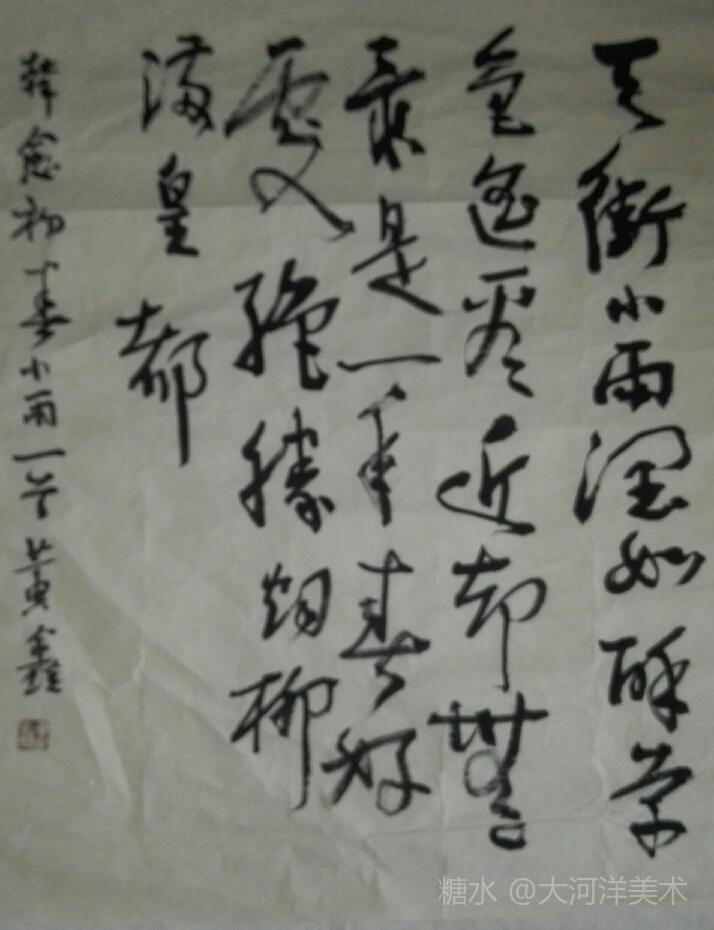 天街小雨润如酥草
色遥看近却無
最是一年春好
處绝勝烟柳
满皇都
韩愈初春小雨一首黄鑫
糖水 @大河洋美术